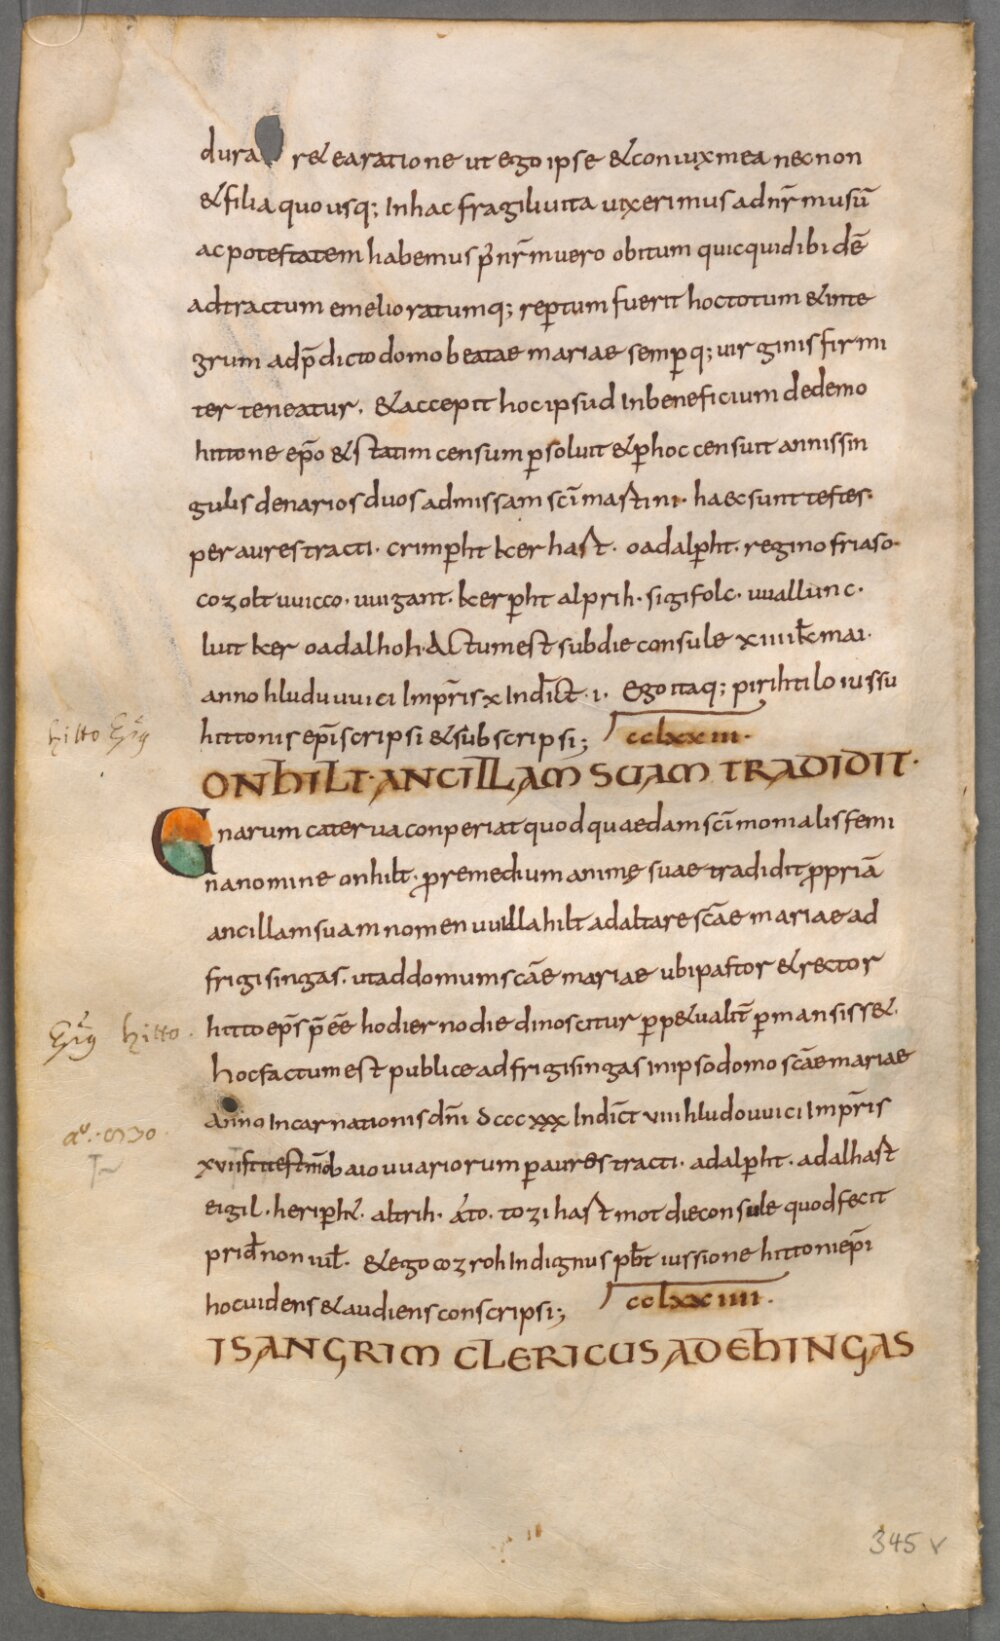 dura r& ea ratione ut ego ipse & coniux mea necnon
& filia quo usq; In hac fragili uita uixerimus ad nr̄m usū
ac potestatem habemus p̄ nr̄m uero obitum quicquid ibidē
adtractum emelioratumq; rep̱tum fuerit hoc totum & inte
grum ad p̄dicto domo beatae mariae semp̱q; uirginis firmi
ter teneatur. & accepit hoc ipsud In beneficium de demo
hittone ep̄o & statim censum p̱soluit & p̱ hoc censuit annis sin
gulis denarios duos ad missam sc̄i martini· haec sunt testes·
per aures tracti· crimp̱ht kerhast· oadalp̱ht· regino friaso·
cozolt uuicco· uuigant· kerp̱ht alprih· sigifolc· uuallunc·
liut ker oadalhoh· Actum est sub die consule xiiii kł mai·
anno hluduuuici Imp̄ris x Indict̄·i· Ego itaq; pirihtilo iussu
hittonis ep̄i scripsi & subscripsi; cclxxiii·
ONHILT· ANCILLAM SUAM TRADIDIT·
Gnarum caterua conperiat quod quaedam sc̄imonialis femi
na nomine onhilt· p̱ remedium animę suae tradidit p̱priā
ancillam suam nomen uuillahilt ad altare sc̄ae mariae ad
frigisingas· ut ad domum sc̄ae mariae ubi pastor & rector
hitto ep̄s p̄eē hodierno die dinoscitur p̱p&ualit̄ p̱mansiss&·
hoc factum est publice ad frigisingas in ipso domo sc̄ae mariae
Anno Incarnationis dn̄i dcccxxx Indict̄ uiii hludouuici Imp̄ris
xvii baiouuariorum p̱ aures tracti· adalp̱ht· adalhast
eigil· herip̱ht· altrih· ato· tozi hastmot die consule quod fecit
prid̄ non iul̄· & ego cozroh Indignus pb̄t iussione hittoni ep̄i
hoc uidens & audiens conscripsi; cclxxiiii·
ISANGRIM CLERICUS AD EHINGAS
hitto
hitto
345 v